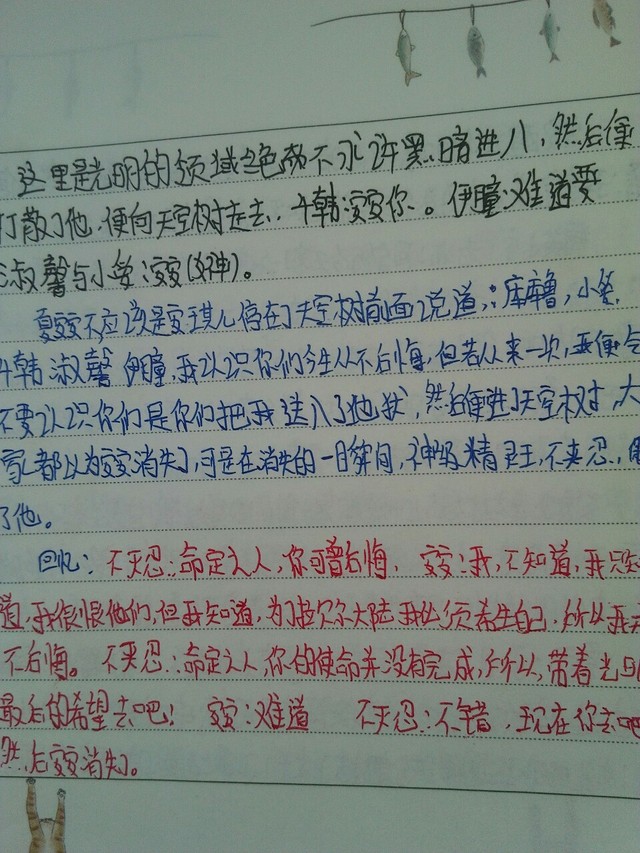 这里是光明的领域绝对不永许黑暗进入，然后便
打散了他，便向天空树走去，千韩：雯雯你。伊瞳：难道要
淑馨与小安：雯雯(女神)。
夏雯不应该是安琪儿停在了天空树前面说道：库鲁，小安，
千韩 淑馨 伊瞳，我认识你们今生从不后悔，但若从来一次，我便会
不要认识你们是你们把我送入了地狱，然后便进了天空树，大
家都以为雯雯消失了，可是在消失的一日舜间，神级精灵王，不灭忍，
了他。
回忆：不灭忍：命定之人，你可曾后悔，雯雯：我，不知道，我只知
道，我很恨他们，但我知道，为了拉贝尔大陆我必须牺生自己，所以我
不后悔。 不灭忍：命定之人，你的使命并没有完成，所以，带着光明
最后的希望去吧！ 雯雯：难道 不灭忍：不错，现在你去吧
然后雯雯消失了。